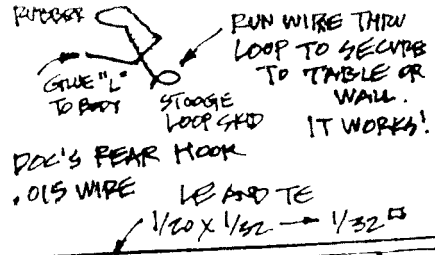 RUBBER
RUN WIRE THRU
LOOP TO SECURE
TO TABLE OR
WALL.
IT WORKS!
GLUE "L"
TO BODY
STOOGE
LOOP SKID
DOC'S REAR HOOK
.015 WIRE
LE AND TE
1/20 X 1/32 → 1/32 □